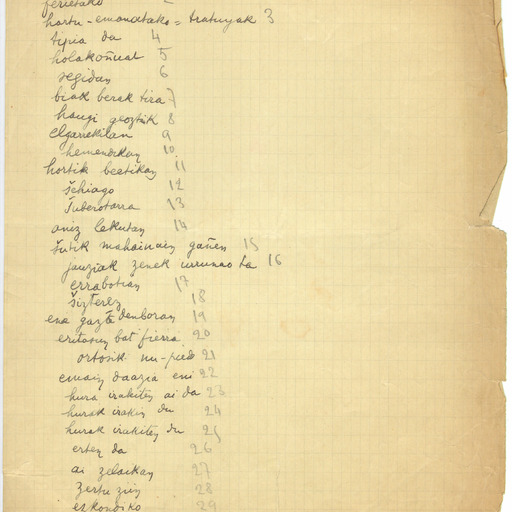 ferietako 2
hartu-emanetako = tratuyak 3
tipia da 4
holakoñuat 5
segidan 6
biak berak tira 7
haugi geoztik 8
elgarrekilan 9
hemendikan 10
hortik beetikan 11
šehiago 12
Tuberotarra 13
aniz lekutan 14
šutik mahainain gañen 15
jauziak zenek urrunao ta 16
errabotian 17
šizterez 18
ene gazte denboran 19
eritasun bat fierra 20
ortosik nu-pieds 21
eman daazia eni 22
hura irakiten ai da 23
hurak irakin du 24
hurak irakiten du 25
erten da 26
ai zelaikan 27
zertu zien 28
ezkondiko 29